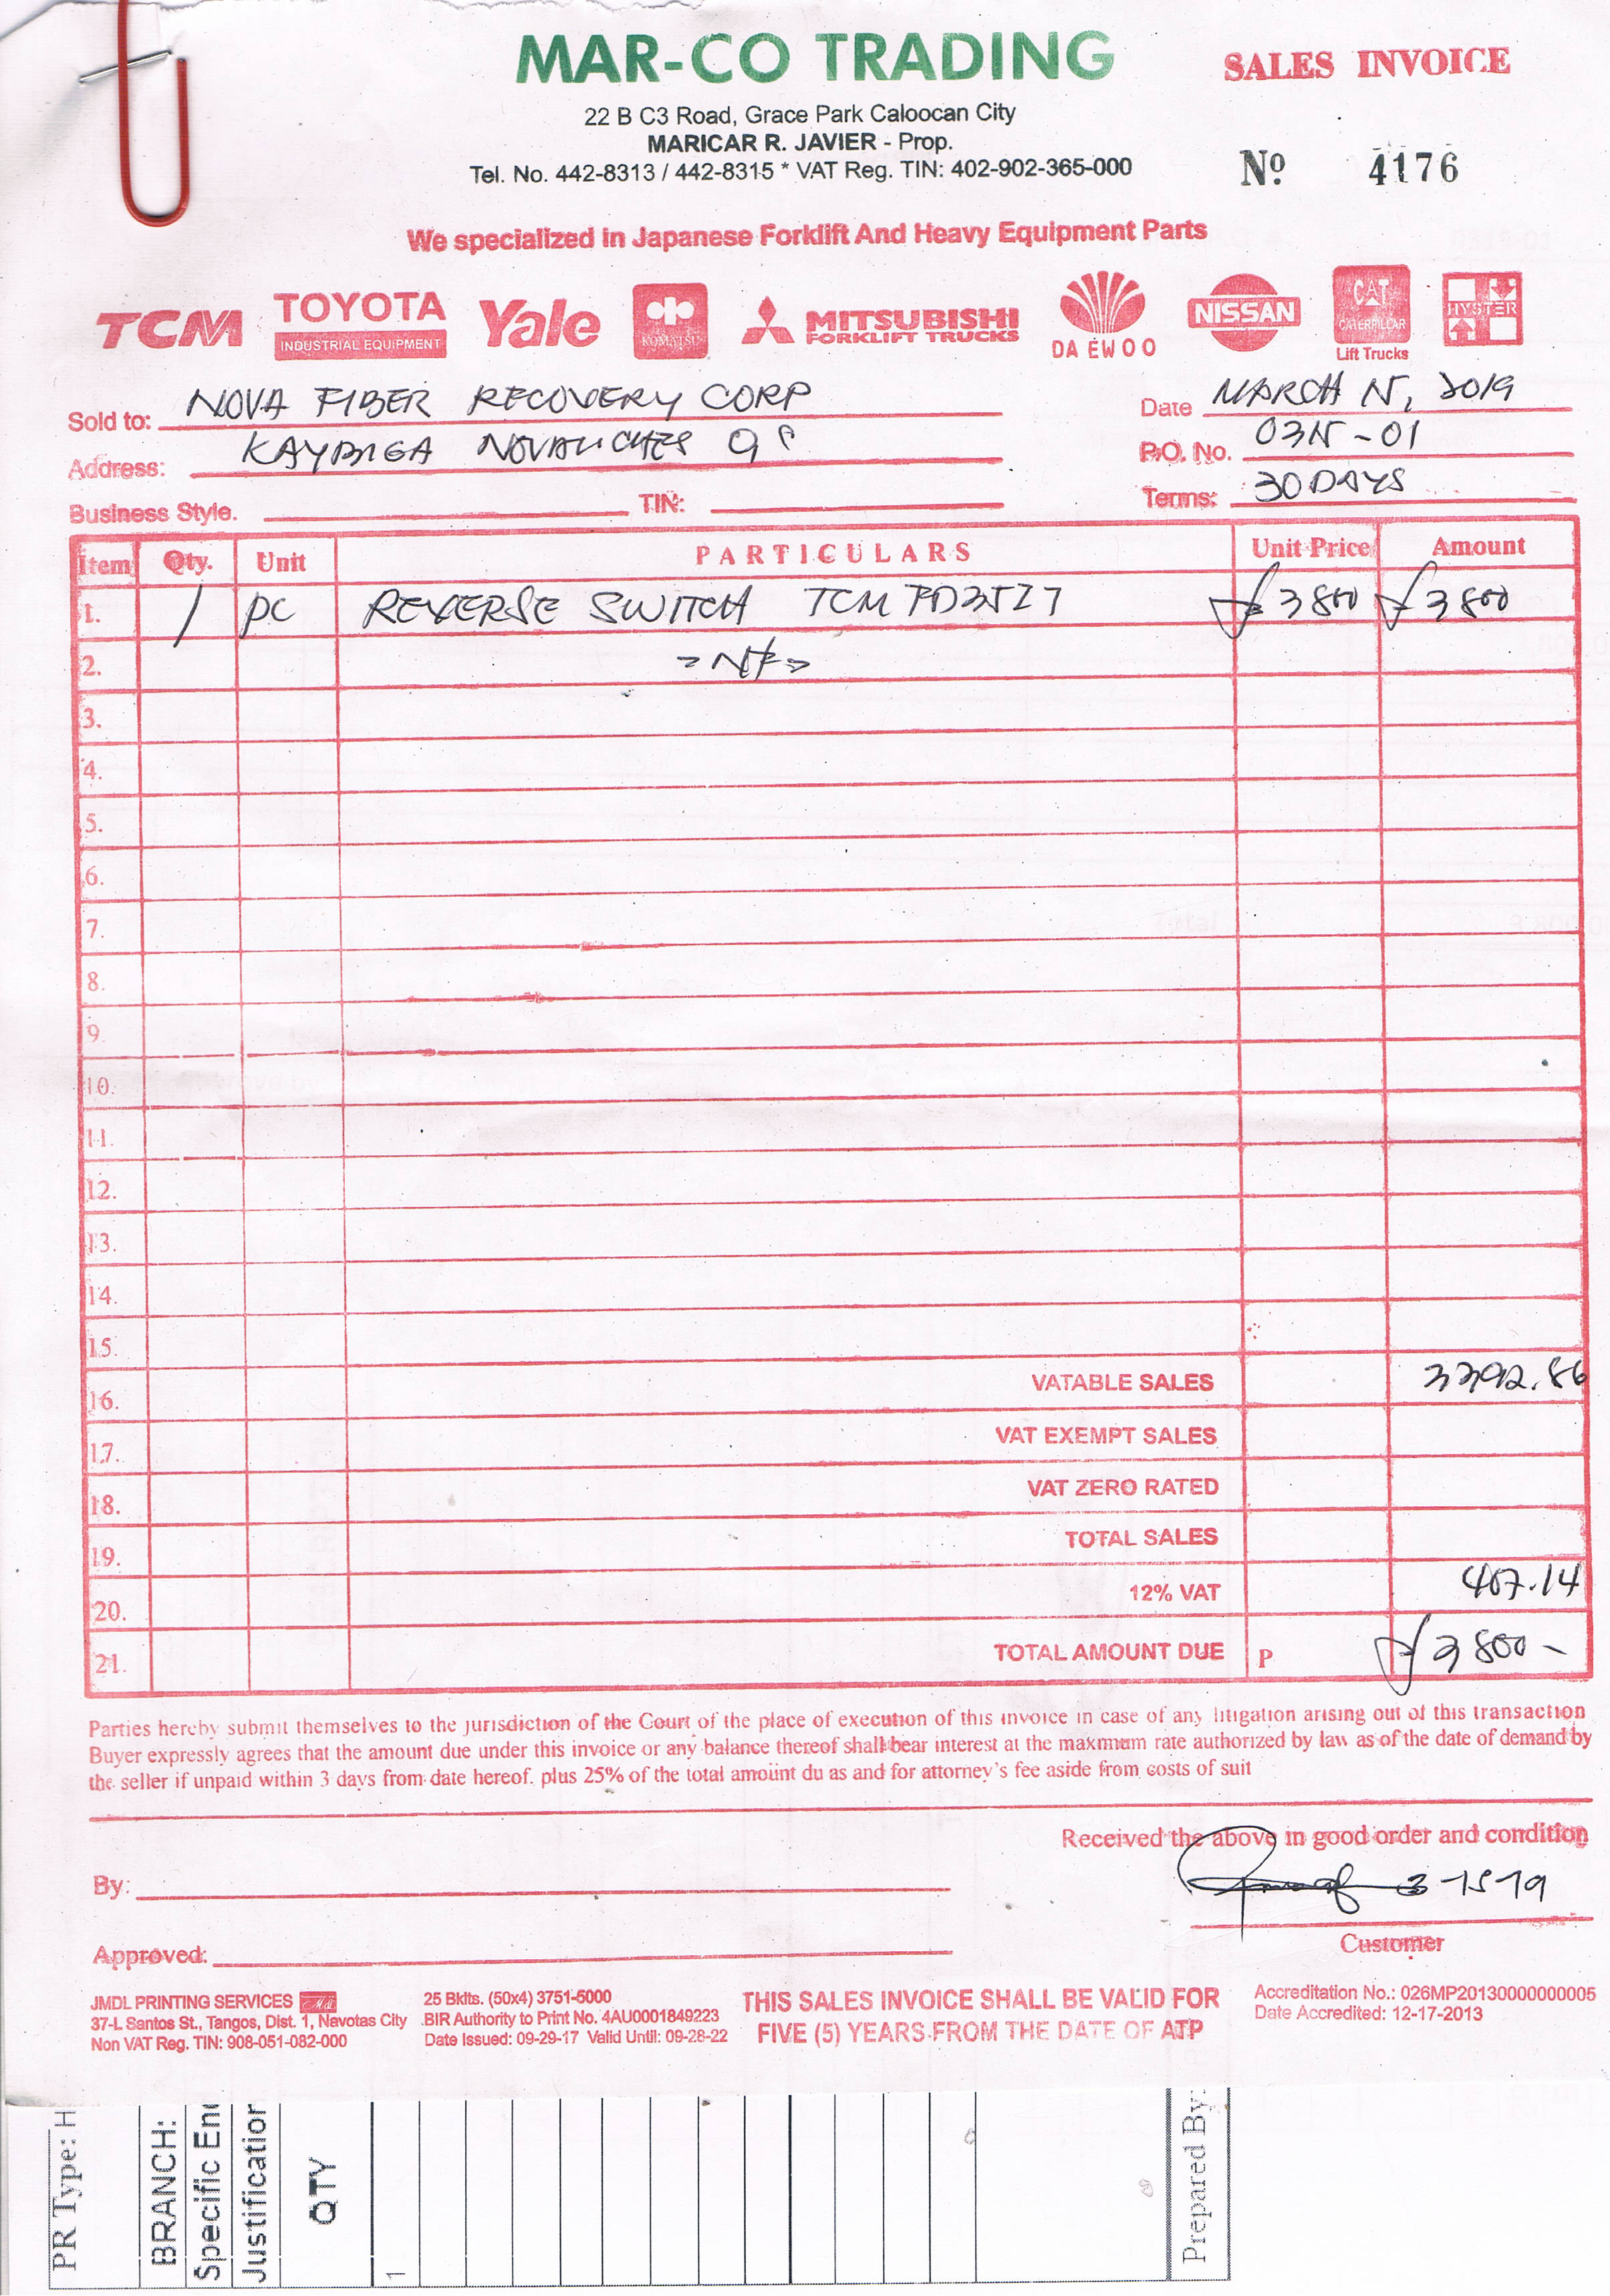 MAR-CO TRADING
SALES INVOICE
22 B C3 Road, Grace Park Caloocan City
MARICAR R. JAVIER - Prop.
Tel. No. 442-8313 / 442-8315 * VAT Reg. TIN: 402-902-365-000
Nº 4176
We specialized in Japanese Forklift And Heavy Equipment Parts
TCM TOYOTA INDUSTRIAL EQUIPMENT Yale KOMATSU MITSUBISHI FORKLIFT TRUCKS DAEWOO NISSAN CAT CATERPILLAR Lift Trucks HYSTER
Sold to: NOVA FIBER RECOVERY CORP
Date MARCH 15, 2019
Address: KAYBIGA NOVALICHES
P.O. No. 0315-01
Business Style. TIN:
Terms: 30 DAYS
Item Qty. Unit PARTICULARS Unit Price Amount
1. 1 pc REVERSE SWITCH TCM FD35Z7 3800 3800
2.
3.
4.
5.
6.
7.
8.
9.
10.
11.
12.
13.
14.
15.
16. VATABLE SALES 3392.86
17. VAT EXEMPT SALES
18. VAT ZERO RATED
19. TOTAL SALES
20. 12% VAT 407.14
21. TOTAL AMOUNT DUE P 3800-
Parties hereby submit themselves to the jurisdiction of the Court of the place of execution of this invoice in case of any litigation arising out of this transaction
Buyer expressly agrees that the amount due under this invoice or any balance thereof shall bear interest at the maxmum rate authorized by law as of the date of demand by
the seller if unpaid within 3 days from date hereof. plus 25% of the total amount du as and for attorney's fee aside from costs of suit
Received the above in good order and condition
By:
3-15-19
Approved:
Customer
JMDL PRINTING SERVICES
37-L Santos St., Tangos, Dist. 1, Navotas City
Non VAT Reg. TIN: 908-051-082-000
25 Bklts. (50x4) 3751-5000
BIR Authority to Print No. 4AU0001849223
Date Issued: 09-29-17 Valid Until: 09-28-22
THIS SALES INVOICE SHALL BE VALID FOR
FIVE (5) YEARS FROM THE DATE OF ATP
Accreditation No.: 026MP20130000000005
Date Accredited: 12-17-2013
PR Type: H
BRANCH:
Specific
Justification
QTY
1
Prepared By: